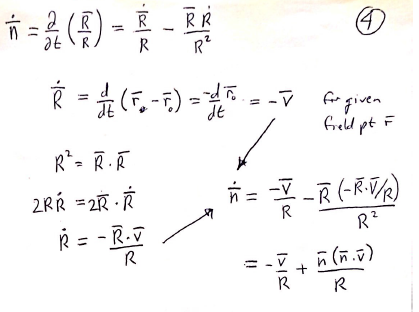 ṅ = ∂/∂t (R̄/R) = Ṙ̄/R − R̄ Ṙ/R²
④
Ṙ̄ = d/dt (r̄ − r̄₀) = −d r̄₀/dt = −v̄
for given
field pt r̄
R² = R̄ · R̄
2RṘ = 2R̄ · Ṙ̄
Ṙ = −R̄·v̄/R
ṅ = −v̄/R − R̄ (−R̄·v̄/R)/R²
= −v̄/R + n̄(n̄·v̄)/R